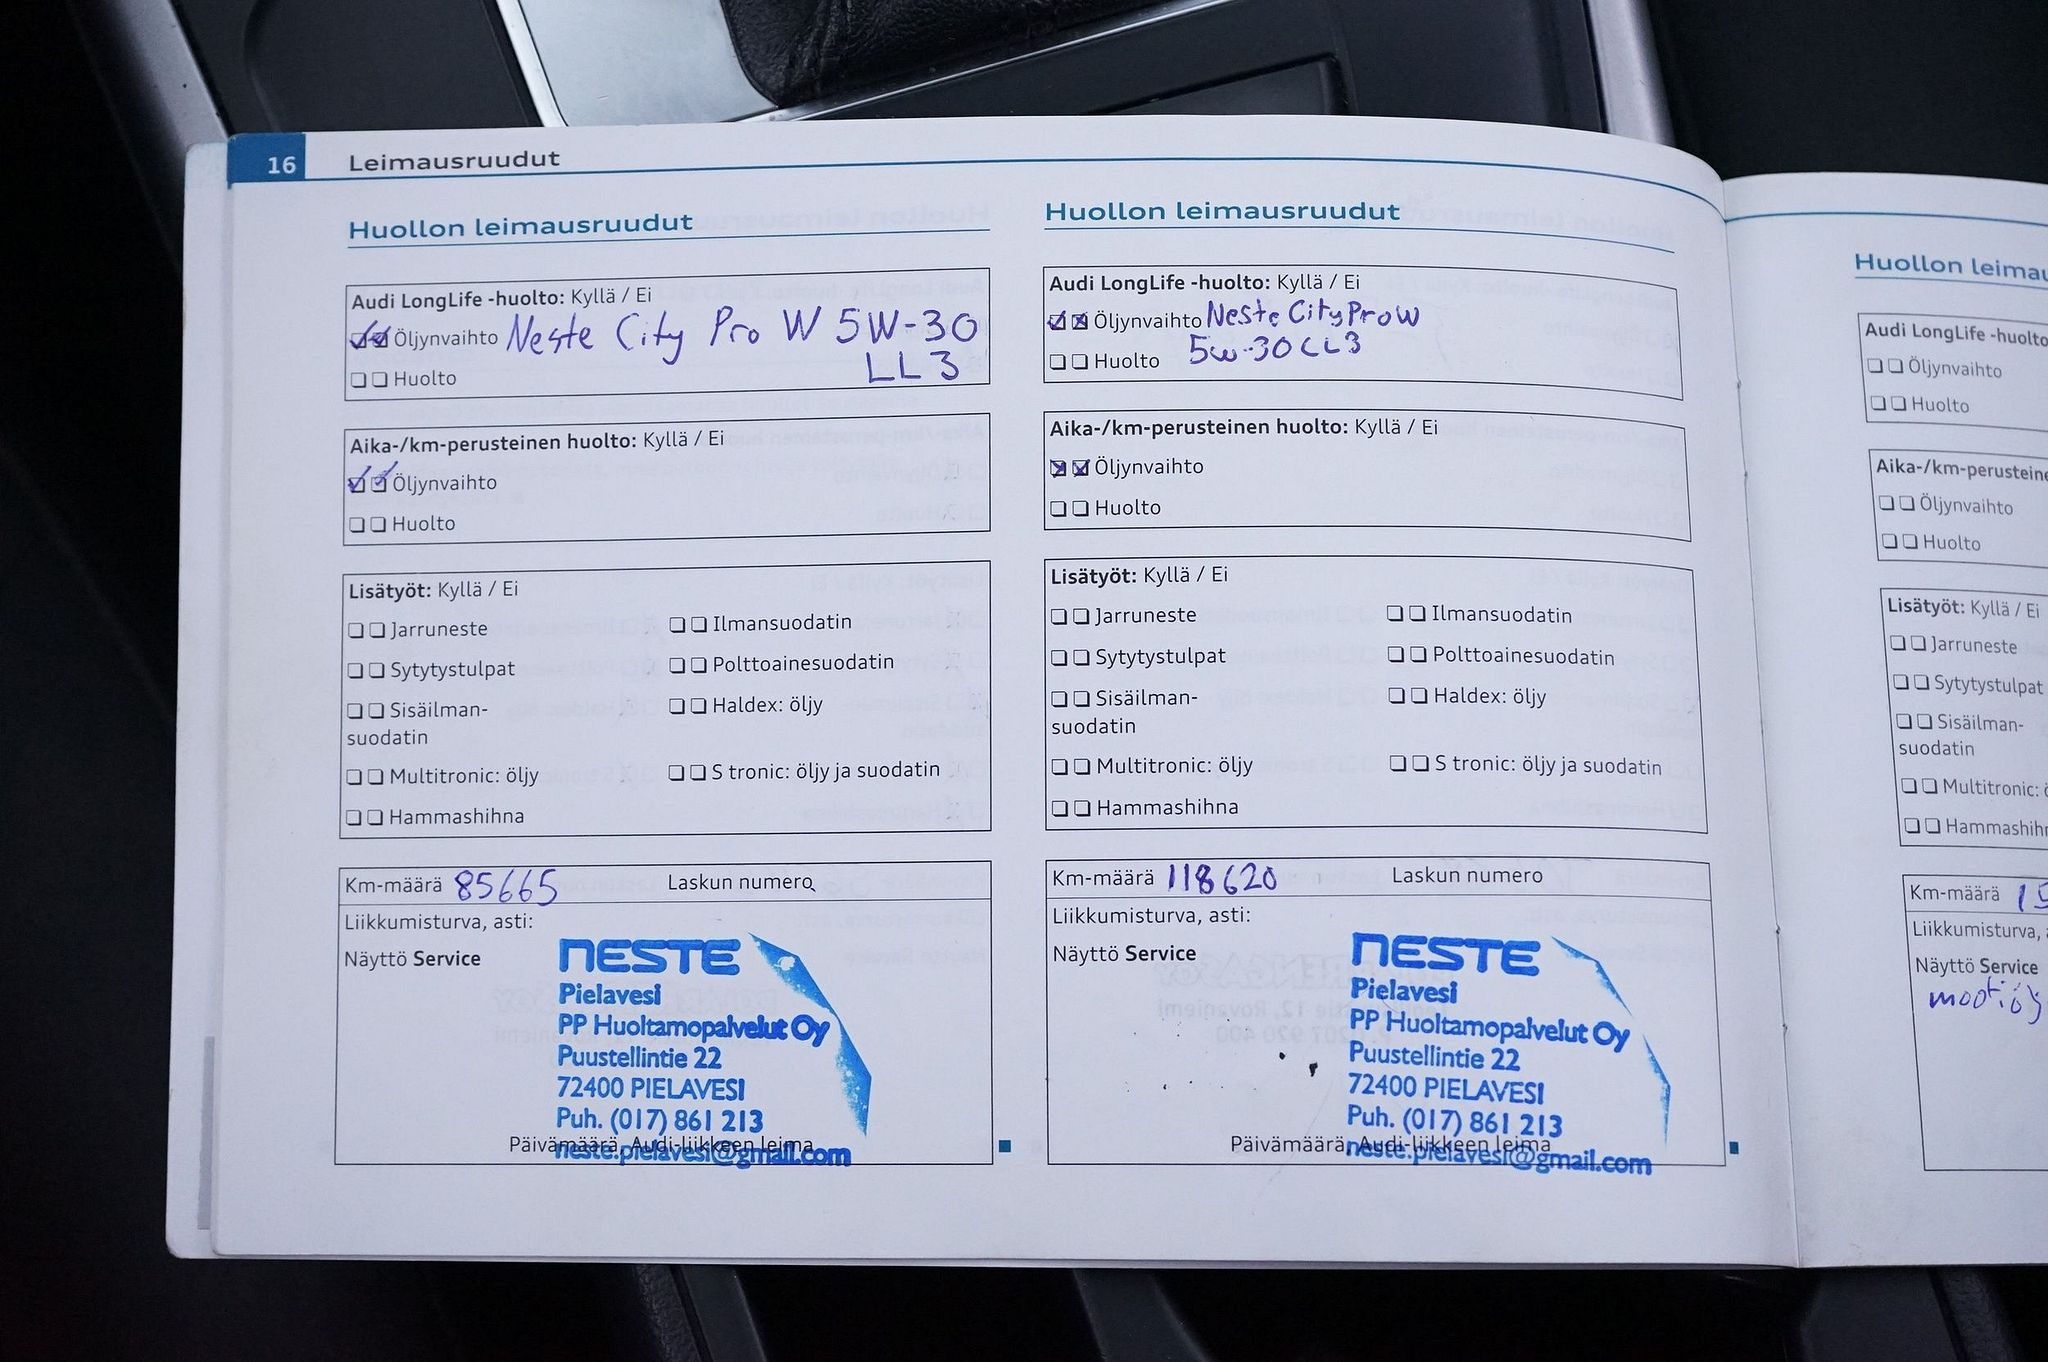 16 Leimausruudut
Huollon leimausruudut
Audi LongLife -huolto: Kyllä / Ei
Öljynvaihto Neste City Pro W 5W-30
LL3
Huolto
Aika-/km-perusteinen huolto: Kyllä / Ei
Öljynvaihto
Huolto
Lisätyöt: Kyllä / Ei
Jarruneste Ilmansuodatin
Sytytystulpat Polttoainesuodatin
Sisäilman- Haldex: öljy
suodatin
Multitronic: öljy S tronic: öljy ja suodatin
Hammashihna
Km-määrä 85665 Laskun numero
Liikkumisturva, asti:
Näyttö Service
NESTE
Pielavesi
PP Huoltamopalvelut Oy
Puustellintie 22
72400 PIELAVESI
Puh. (017) 861 213
Päivämäärä, Audi-liikkeen leima
neste.pielavesi@gmail.com
Huollon leimausruudut
Audi LongLife -huolto: Kyllä / Ei
Öljynvaihto Neste City Pro W
Huolto 5w-30 LL3
Aika-/km-perusteinen huolto: Kyllä / Ei
Öljynvaihto
Huolto
Lisätyöt: Kyllä / Ei
Jarruneste Ilmansuodatin
Sytytystulpat Polttoainesuodatin
Sisäilman- Haldex: öljy
suodatin
Multitronic: öljy S tronic: öljy ja suodatin
Hammashihna
Km-määrä 118620 Laskun numero
Liikkumisturva, asti:
Näyttö Service
NESTE
Pielavesi
PP Huoltamopalvelut Oy
Puustellintie 22
72400 PIELAVESI
Puh. (017) 861 213
Päivämäärä, Audi-liikkeen leima
neste.pielavesi@gmail.com
Huollon leima
Audi LongLife -huolto
Öljynvaihto
Huolto
Aika-/km-perusteine
Öljynvaihto
Huolto
Lisätyöt: Kyllä / Ei
Jarruneste
Sytytystulpat
Sisäilman-
suodatin
Multitronic:
Hammashih
Km-määrä 15
Liikkumisturva,
Näyttö Service